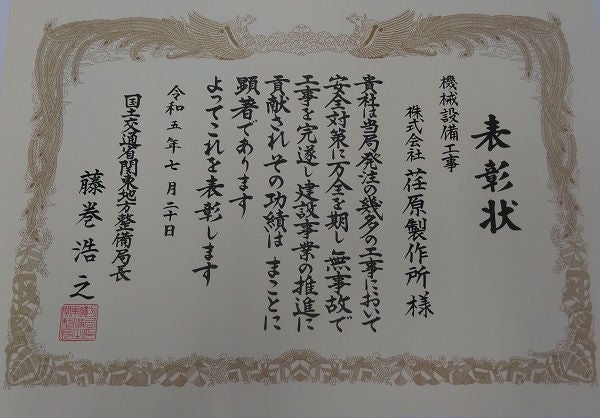 表彰状
機械設備工事
株式会社 荏原製作所 様
貴社は当局発注の幾多の工事において
安全対策に万全を期し 無事故で
工事を完遂し建設事業の推進に
貢献され その功績は まことに
顕著であります
よってこれを表彰します
令和五年七月二十日
国土交通省関東地方整備局長
藤巻浩之